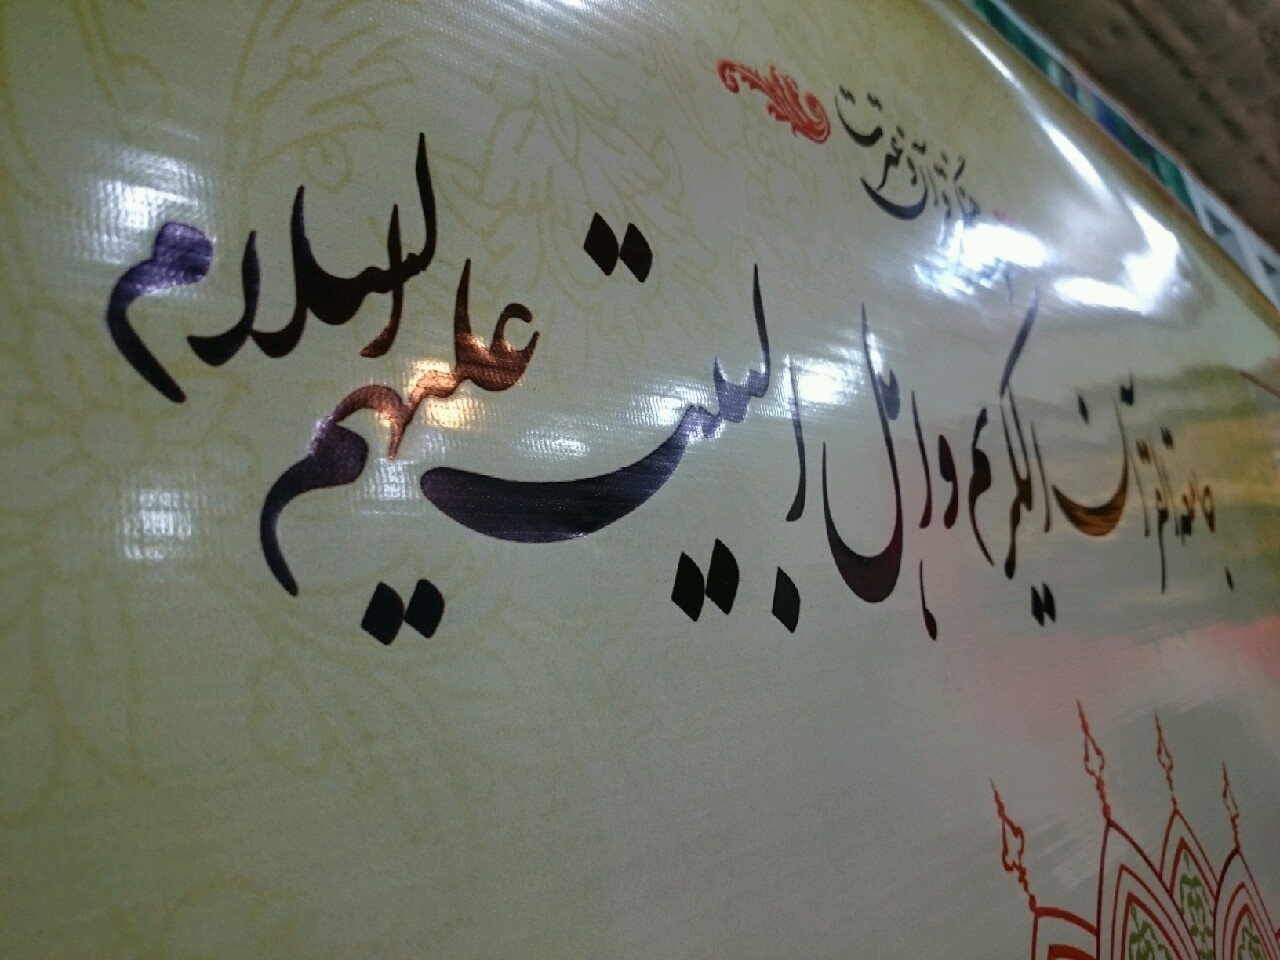 قرآن و عترت
جامعة القرآن الکریم و اهل البیت علیهم السلام